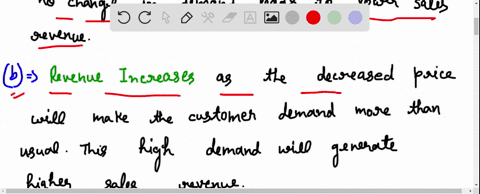 no change in demand leads to lower sales
revenue.
(b)⇒ Revenue Increases as the decreased price
will make the customer demand more than
usual. This high demand will generate
higher sales revenue.